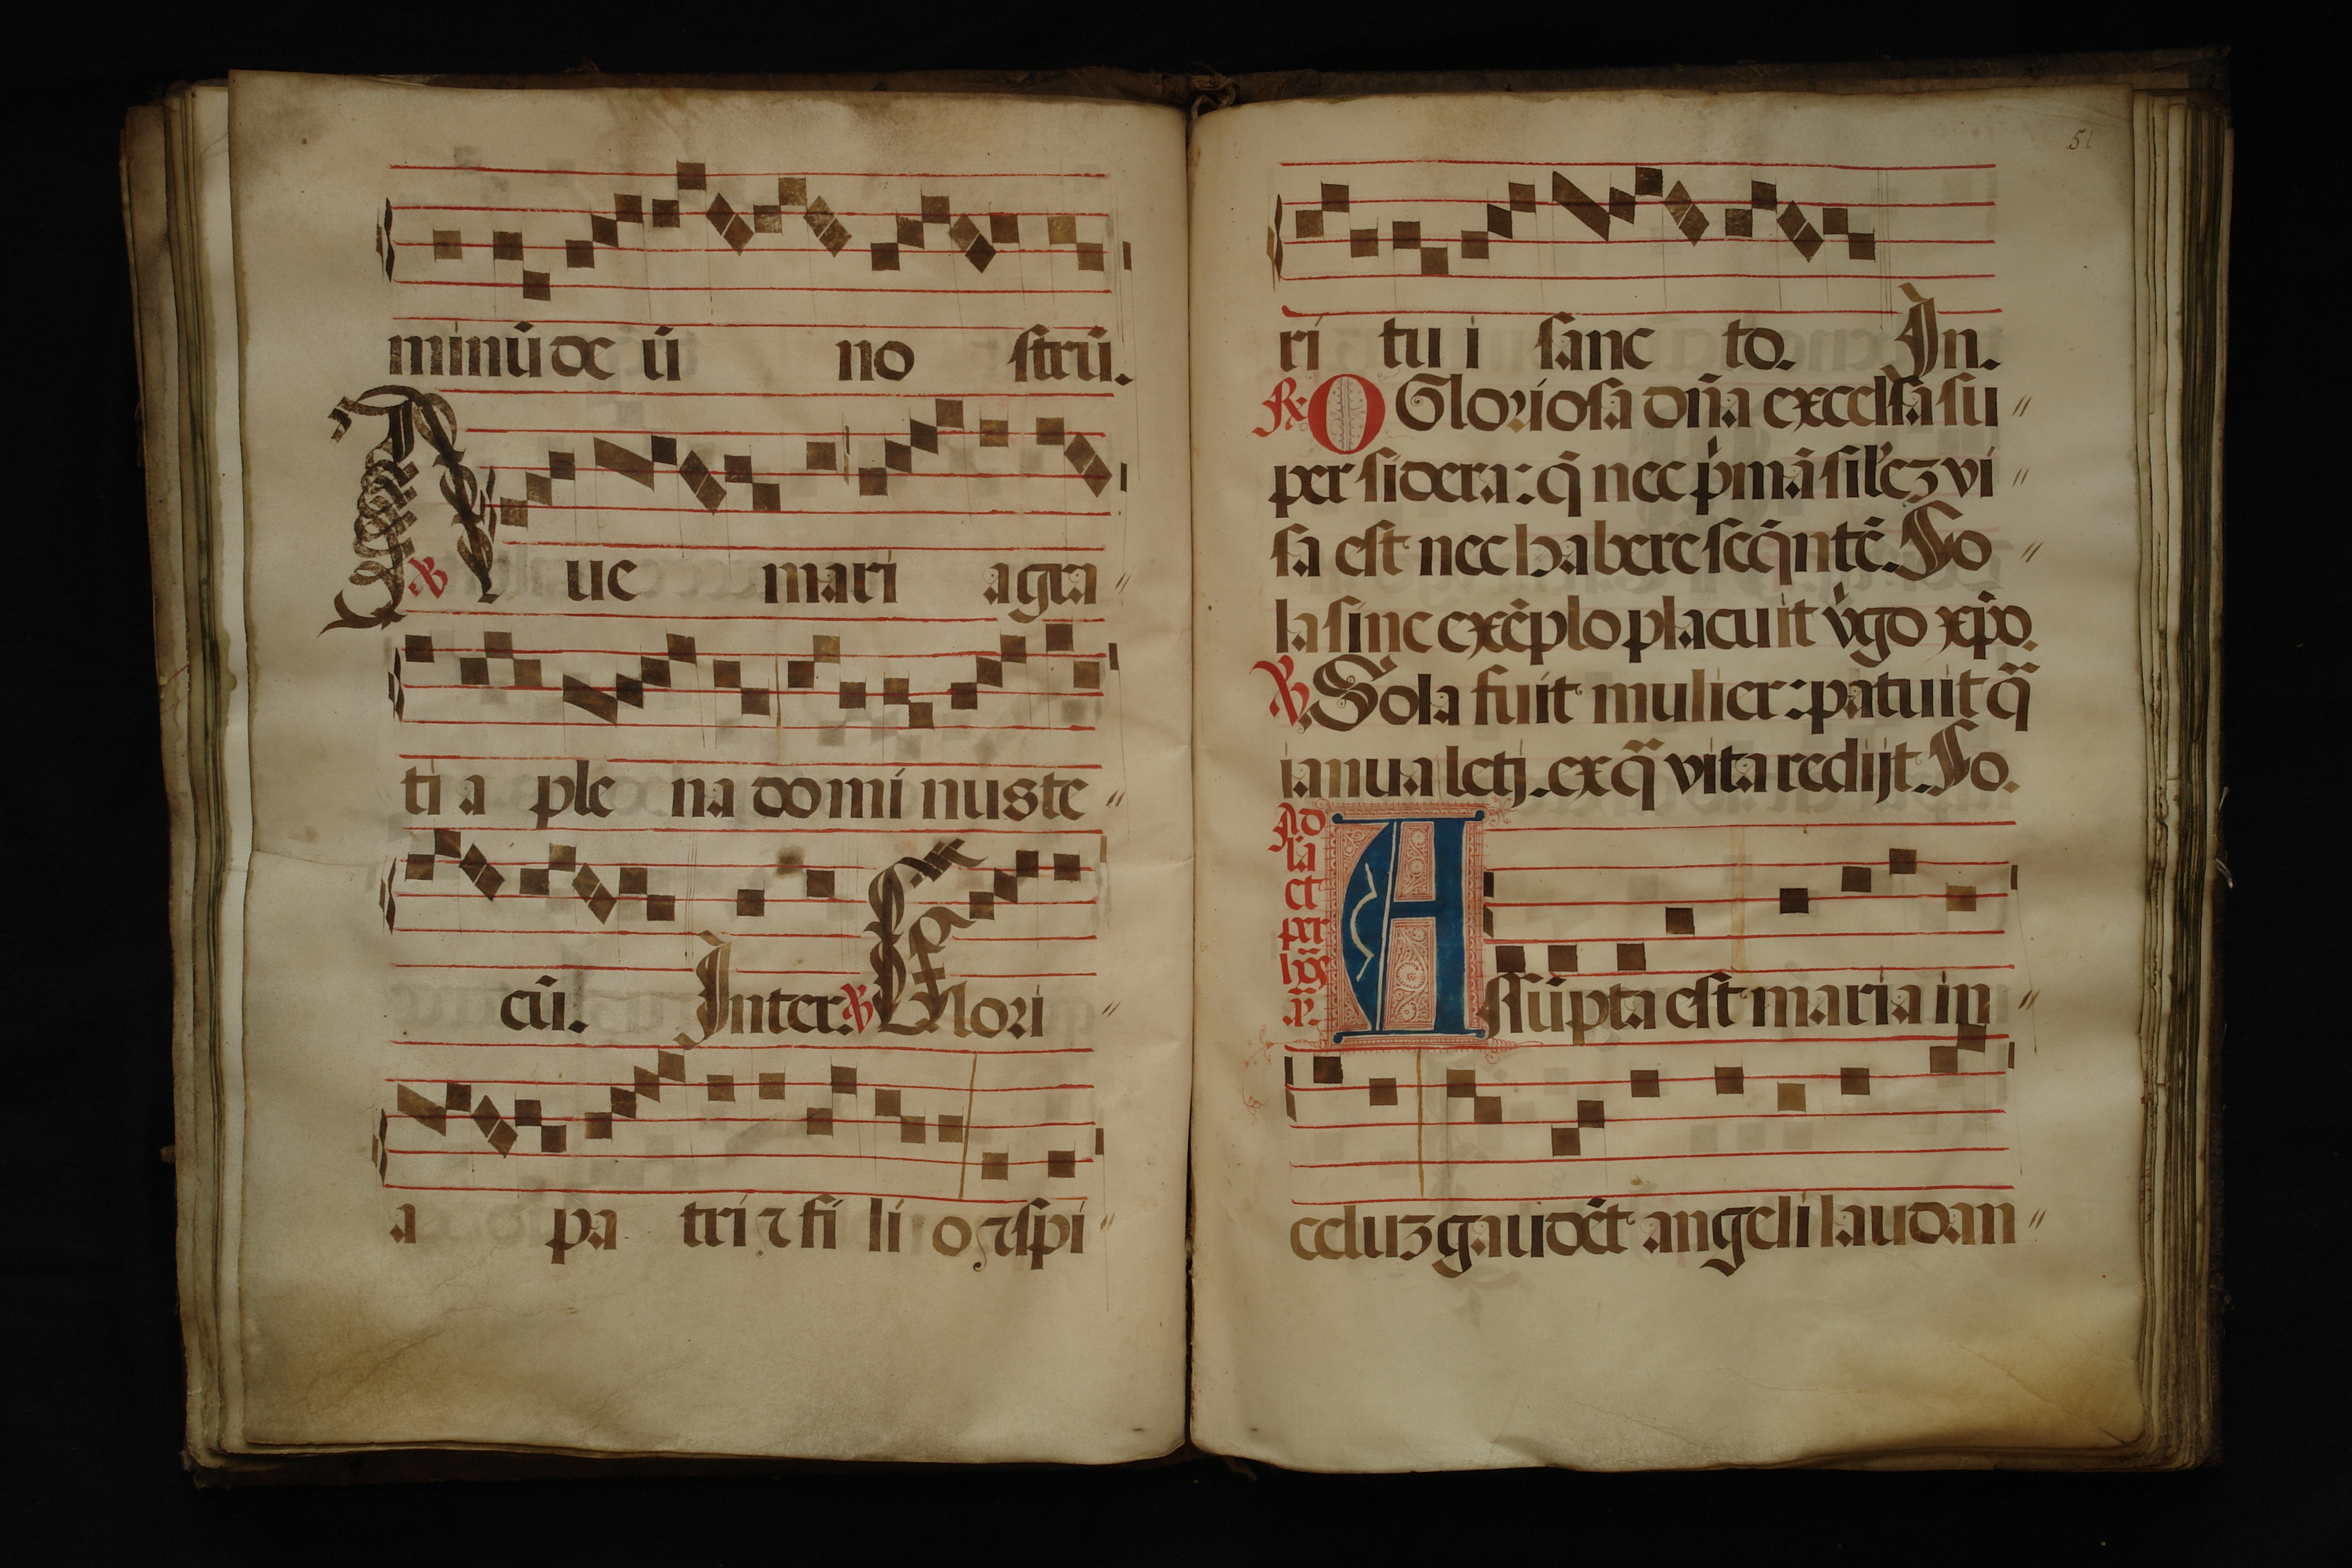 minū de ū no strū.
℣ Aue mari a gra
ti a ple na do mi nus te
cū. Inter. ℣ Glori
a pa tri ⁊ fi li o ⁊ spi
51
ri tu i sanc to. In.
℟ O Gloriosa dn̄a excelsa su
per sidera: q̄ nec pͥmā silēz vi
sa est nec habere seq̄ntē. So
la sine exēplo placuit vͥgo xp̄o.
℣. Sola fuit mulier: patuit q̄
ianua letj. ex q̄ vita redijt. So.
Ad
la
et
per
A ssūpta est maria in
celuz gaudēt angeli laudan